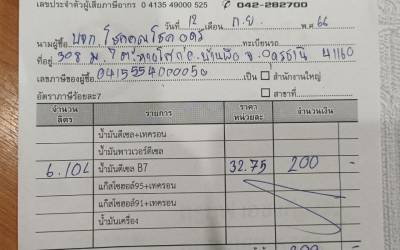 เลขประจำตัวผู้เสียภาษีอากร 0 4135 49000 525 042-282700
วันที่ 12 เดือน ก.ย. พ.ศ 66
นามผู้ซื้อ บจก. โชคคูณโชค อุดร ทะเบียนรถ
ที่อยู่ 508 ม. อ.บ้านผือ จ.อุดรธานี 41160
เลขภาษีของผู้ซื้อ 0415554000050 เป็น สำนักงานใหญ่
อัตราภาษีร้อยละ7 สาขาที่
จำนวน ลิตร รายการ ราคา หน่วยละ จำนวนเงิน
น้ำมันดีเซล+เทครอน
น้ำมันพาวเวอร์ดีเซล
6.10L น้ำมันดีเซล B7 32.75 200 -
แก๊สโซฮอล์95+เทครอน
แก๊สโซฮอล์91+เทครอน
น้ำมันเครื่อง